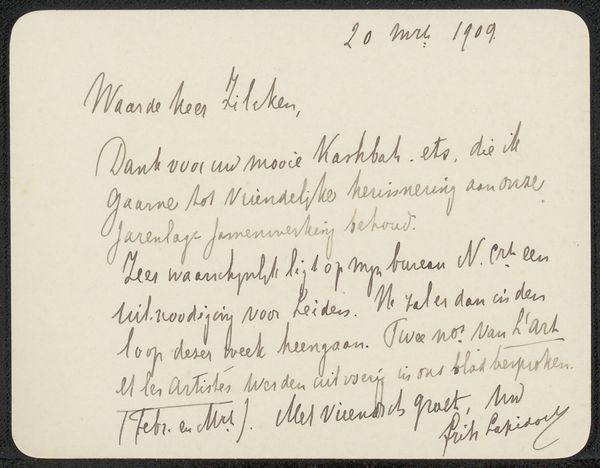 20 Mrt 1909.
Waarde heer Zilcken,
Dank voor uw mooie Kashbah-ets, die ik
gaarne tot vriendelijke herinnering aan onze
jarenlange samenwerking behoud.
Zeer waarschynlyk ligt op myn bureau N. Crt een
uitnoodiging voor Leiden. Ik zal er dan in den
loop dezer week heengaan. Twee nos van L'Art
et les Artistes werden uitvoerig in ons blad besproken.
(Febr. en Mrt). Met vriendsch groet, Uw
Frits Lapidoth